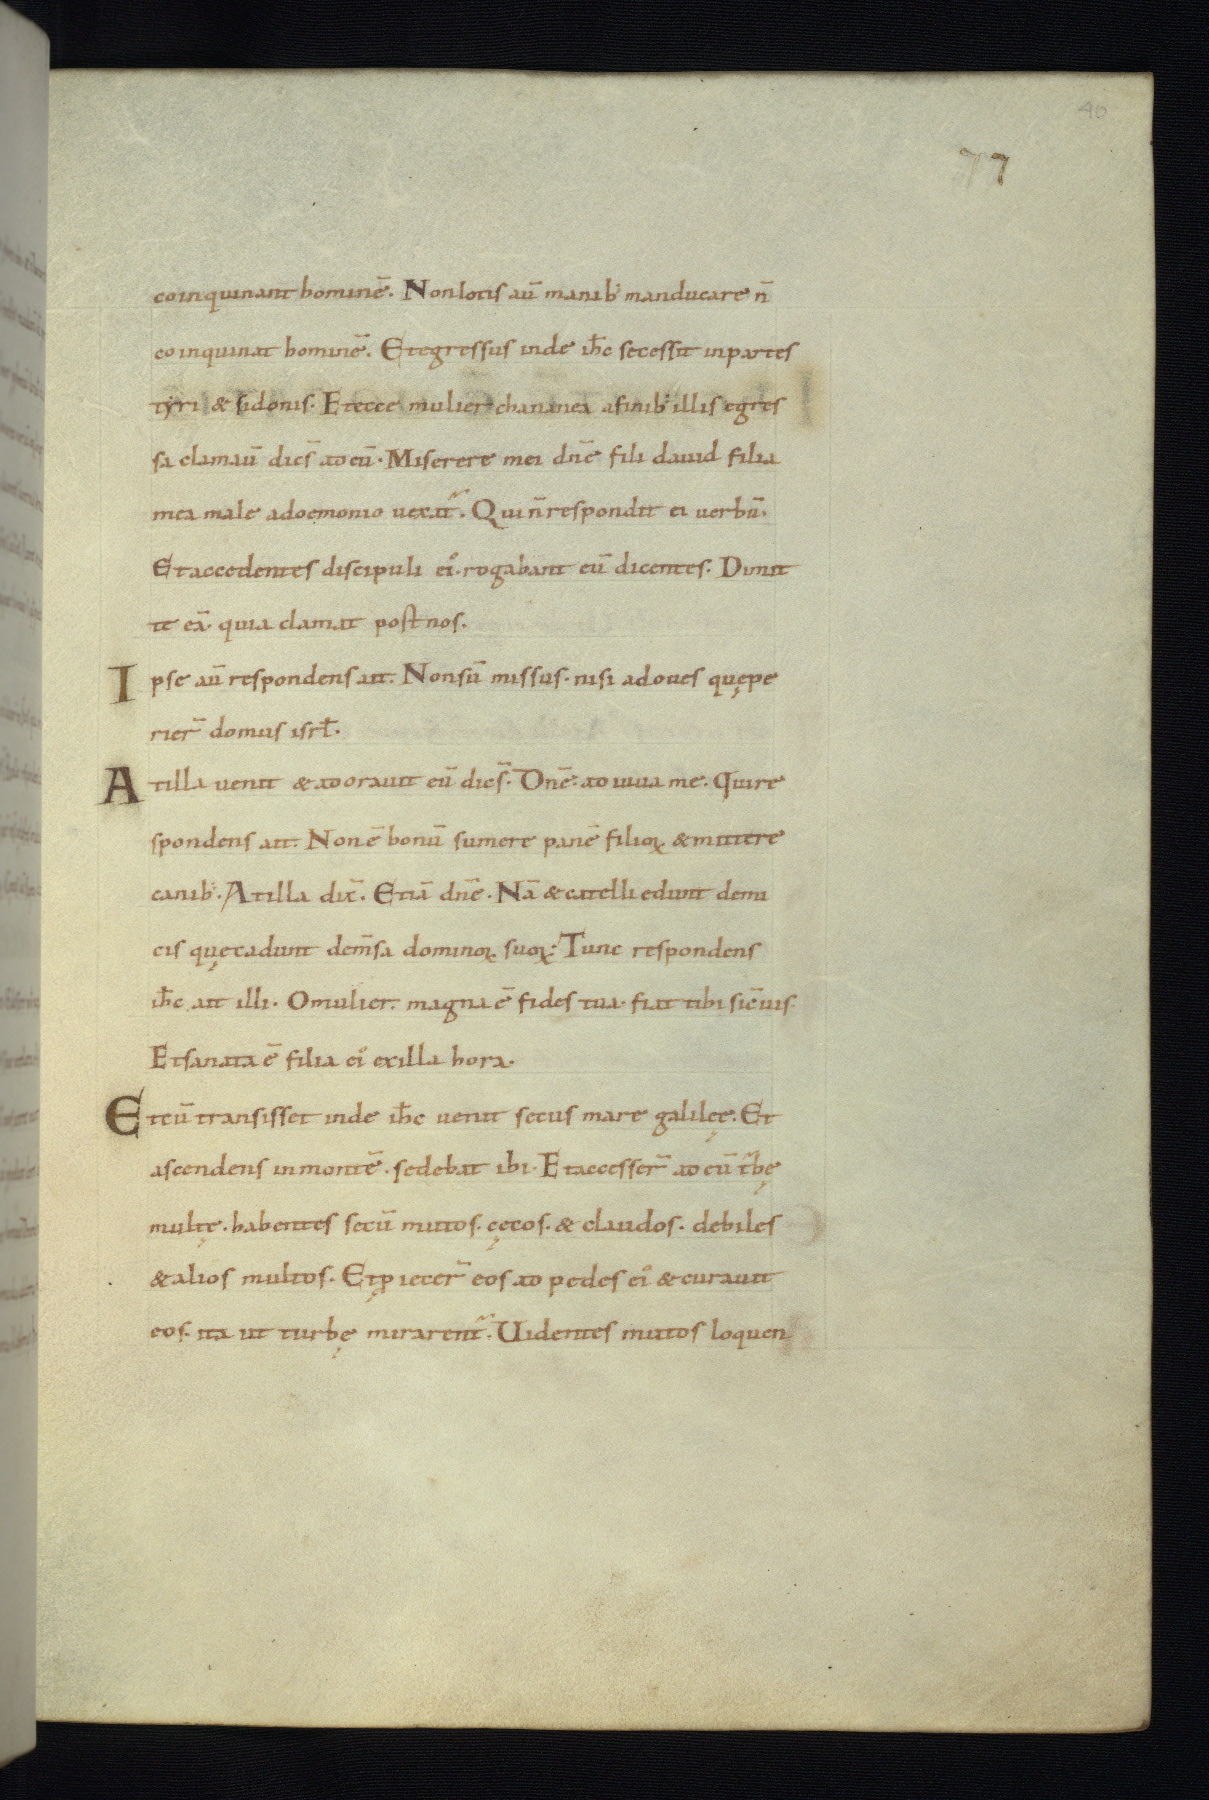 40
77
coinquinant hominē. Non lotis aū manib; manducare n̄
coinquinat hominē. Et egressus inde ihc̄ secessit in partes
tyri & sidonis. Et ecce mulier chananea a finib; illis egres
sa clamaū dicēs ad eū. Miserere mei dn̄e fili dauid filia
mea male a doemonio uexat̄. Qui n̄ respondit ei uerbū.
Et accedentes discipuli ei᾿ rogabant eū dicentes. Dimit
te eā. quia clamat post nos.
Ipse aū respondens ait. Non sū missus. nisi ad oues quępe
rier̄ domus isrl̄.
At illa uenit & adorauit eū dicēs. Dn̄e. adiuua me. Qui re
spondens ait. Non ē bonū sumere panē filioꝝ & mittere
canib;. At illa dix̄. Etiā dn̄e. Nā & catelli edunt de mi
cis quę cadunt de m̄sa dominoꝝ suoꝝ. Tunc respondens
ihc̄ ait illi. O mulier. magna ē fides tua. fiat tibi sic̄ uis.
Et sanata ē filia ei᾿ ex illa hora.
Et cū transisset inde ihc̄ uenit secus mare galileę. Et
ascendens in montē. sedebat ibi. Et accesser̄ ad eū t̄bę
multę. habentes secū mutos. cęcos. & claudos. debiles
& alios multos. Et ꝓiecer̄ eos ad pedes ei᾿ & curauit
eos. ita ut turbę mirarent̄. Uidentes mutos loquen